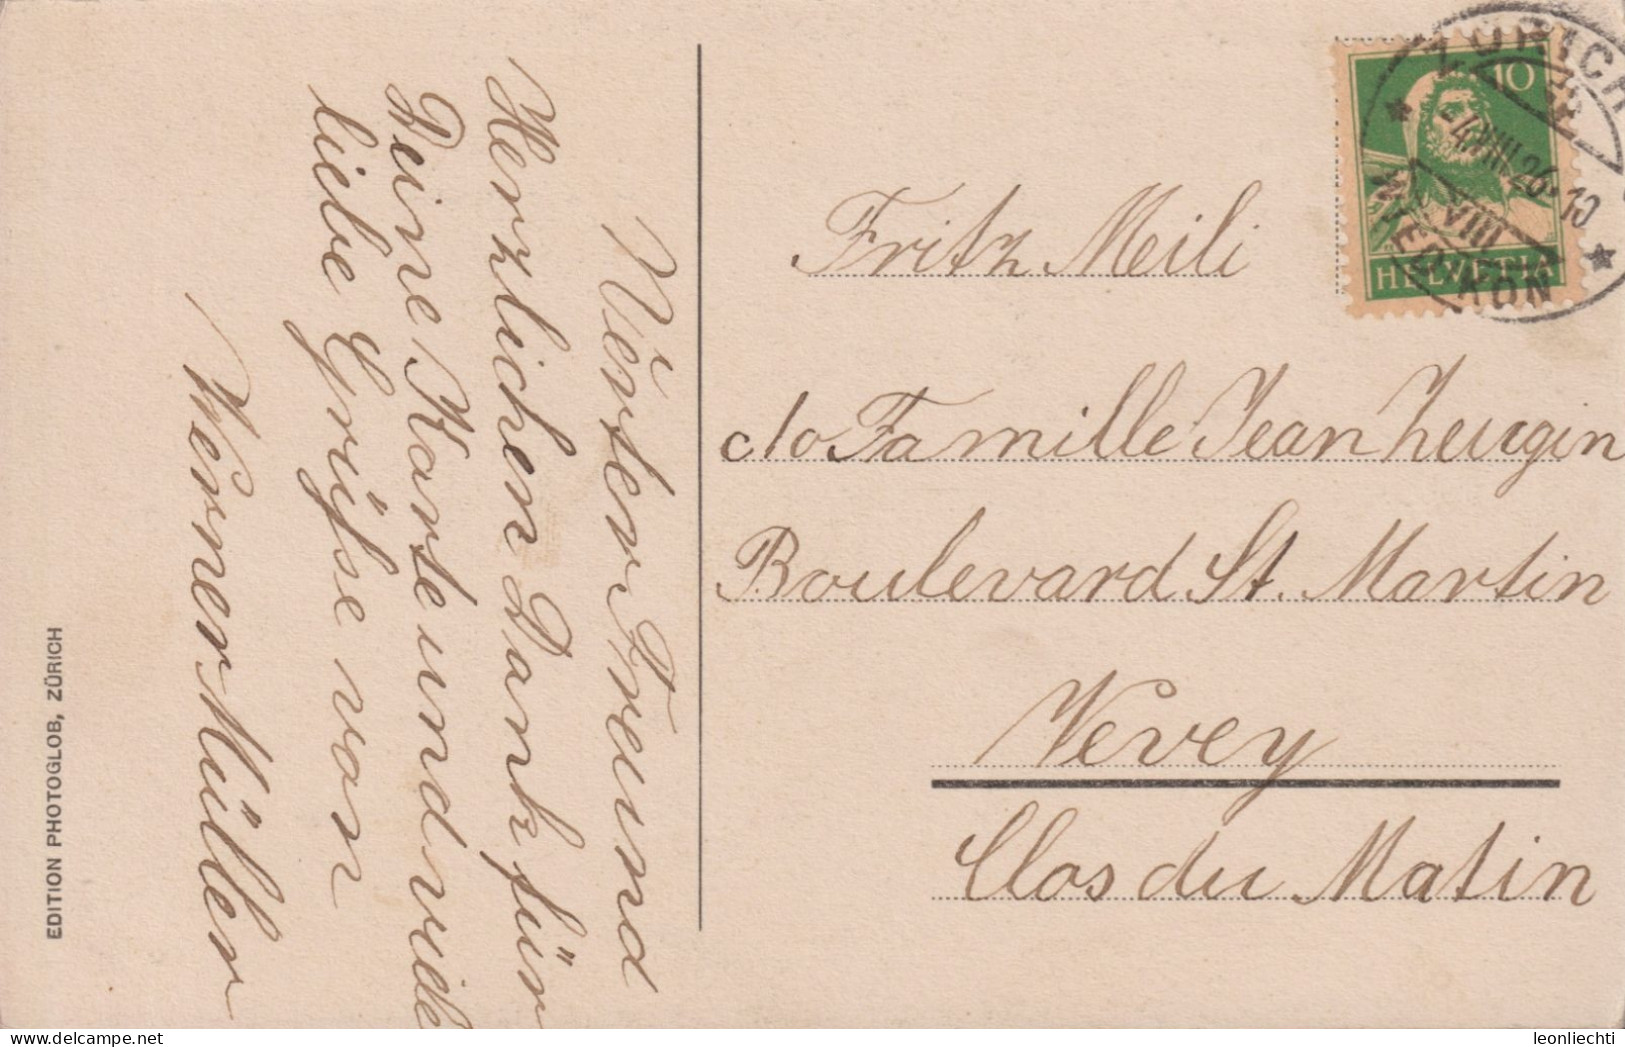 Werter Freund
Herzlichen Dank für
Deine Karte und viele
liebe Grüsse von
Werner Müller
EDITION PHOTOGLOB, ZÜRICH
Fritz Meili
c/o Famille Jean Zeugin
Boulevard St. Martin
Vevey
Clos du Matin
10
HELVETIA
ZÜRICH
VIII
leonliechti